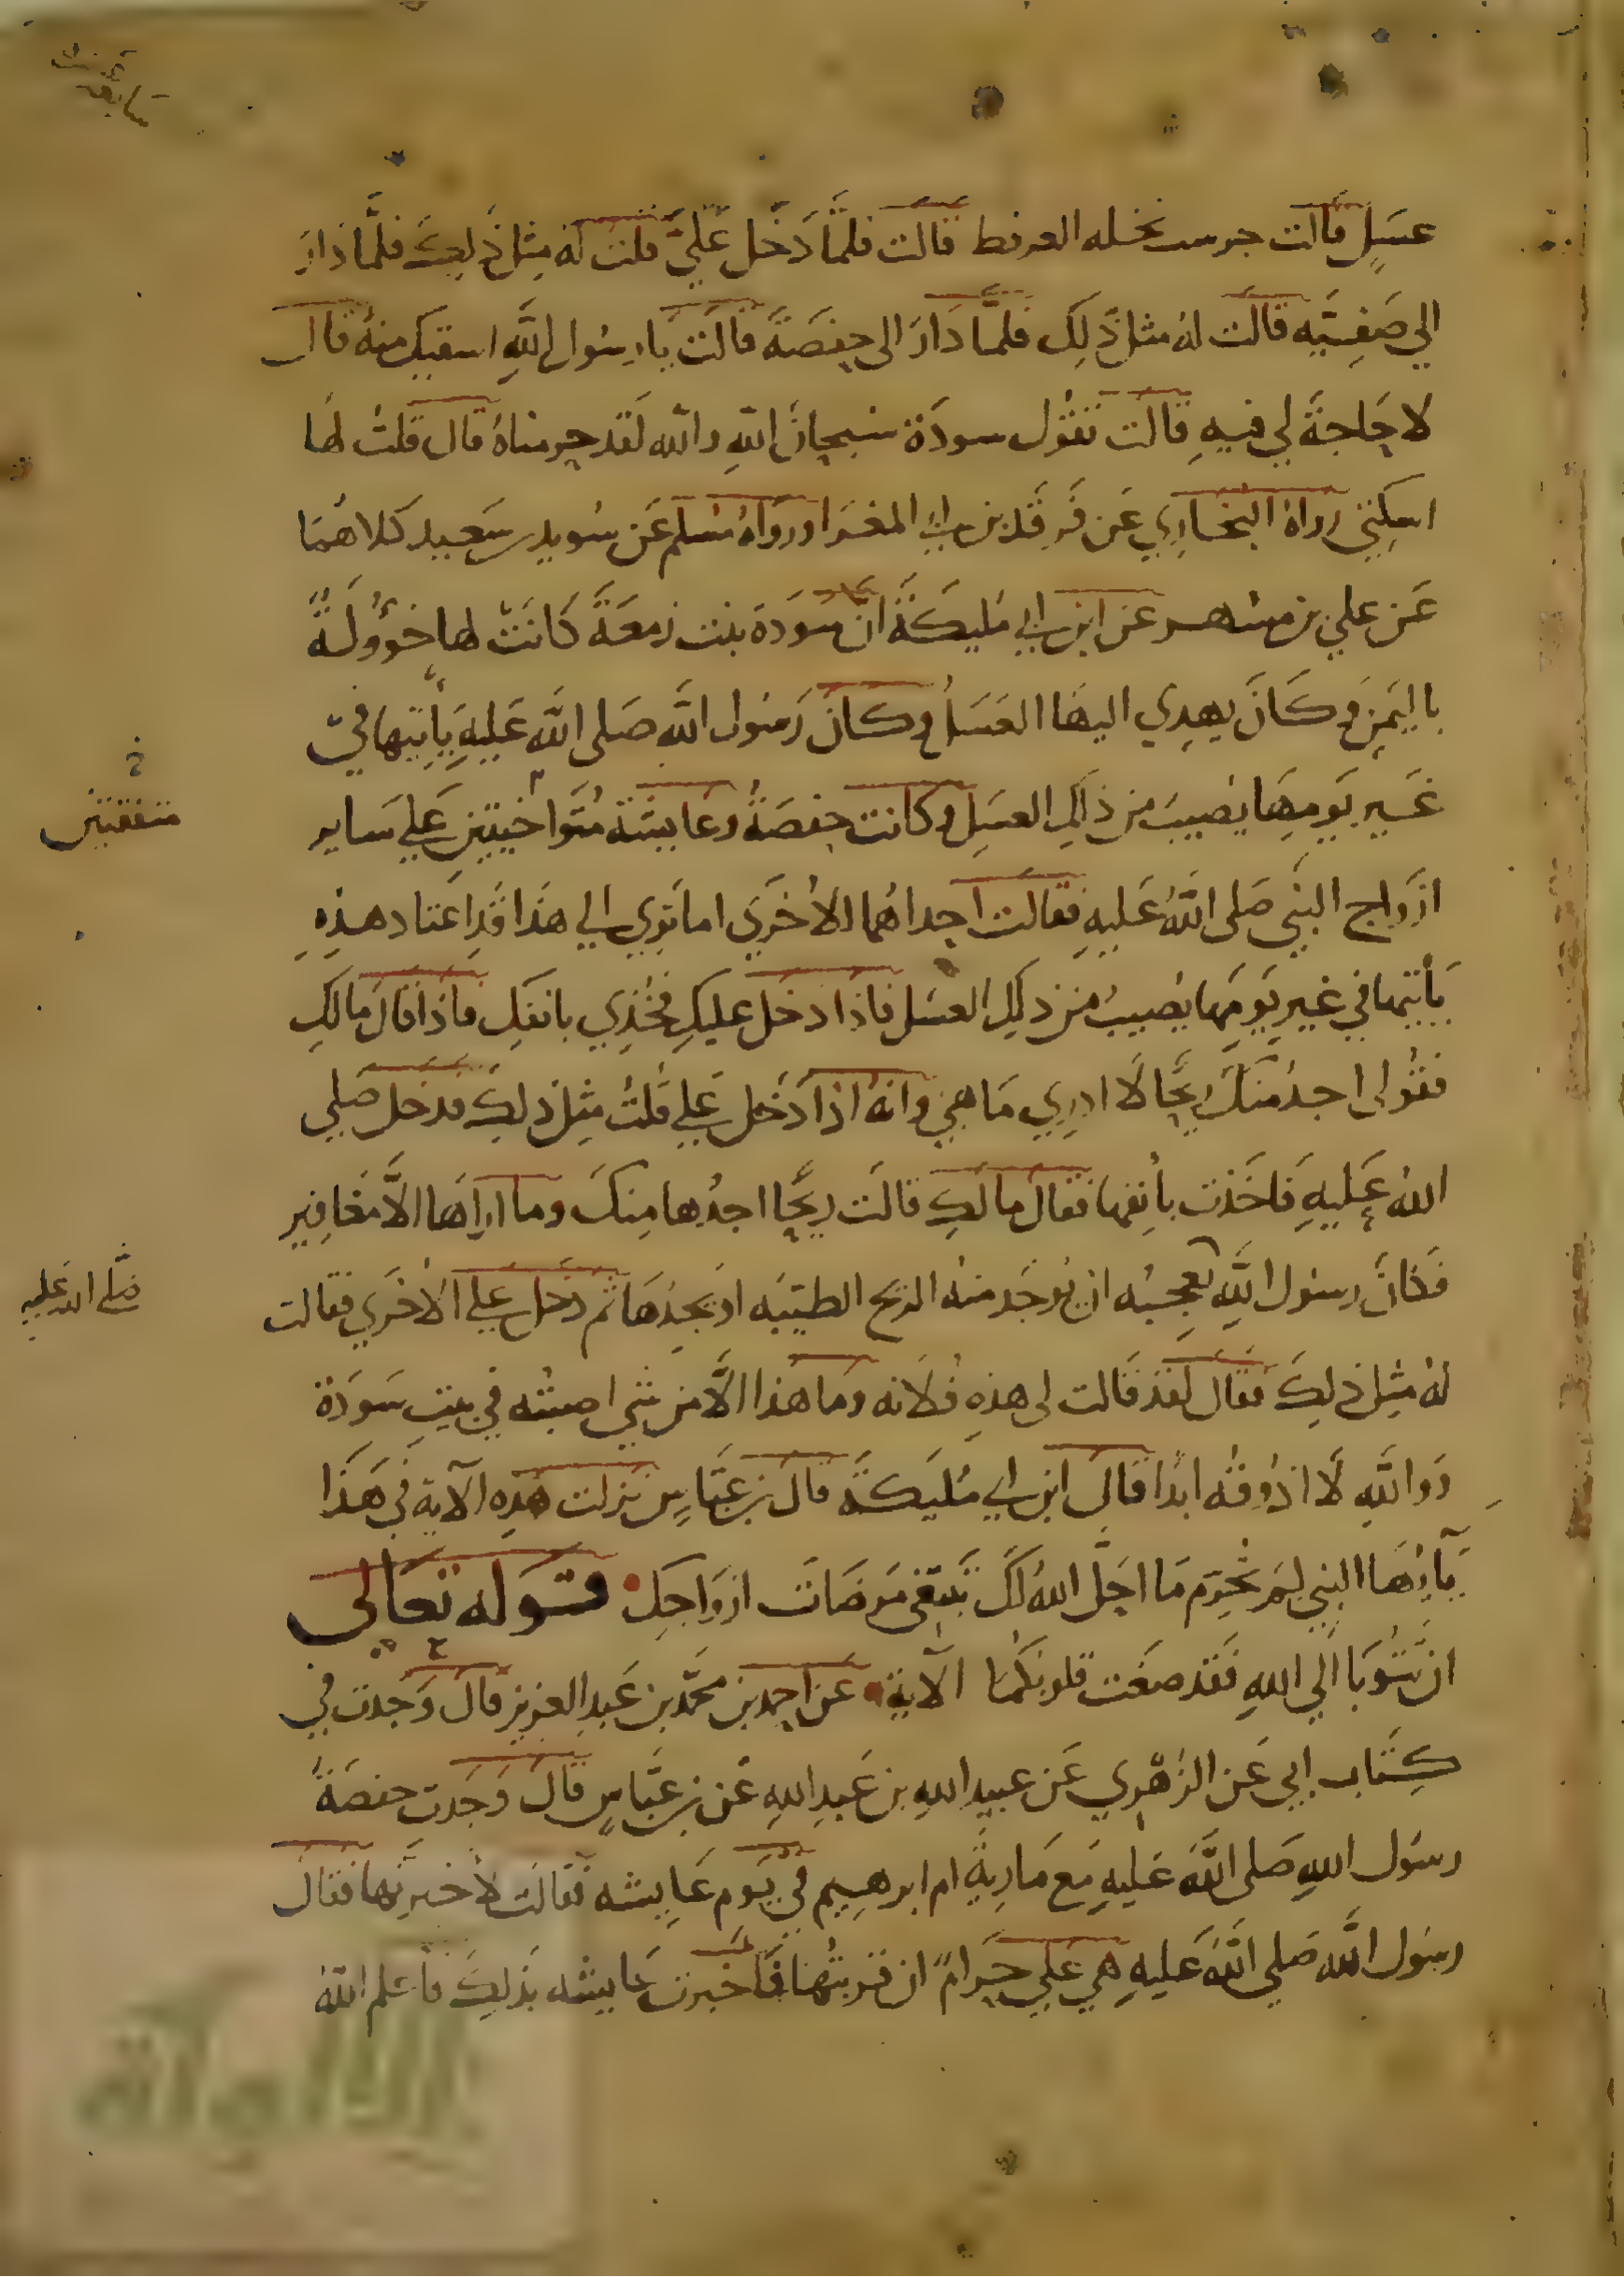 عسَلٍ قالت جرست نخله العرفط قالت فلمَّا دَخَل عَليَّ قلت لهُ مِثل ذلِكَ فلمَّا دَارَ
الي صَفِيَّه قالَت لهُ مثل ذلِك فلمَّا دَارَ الى حفصَةَ قالَت يَا رسُول اللَّهِ اسقيك منهُ قال
لا حَاجةَ لي فيهِ قالت تقوُل سودَة سُبحانَ اللهِ والله لَقد حرمناهُ قال قلتُ لها
اسكتي رواهُ البخارِي عَن فَرِقَد بن ابي المغرَا ورواهُ مُسلم عَن سُويد بن سَعيد كلاهُمَا
عَن علي بن مسهر عَن ابن ابي مُليكَةَ انَّ سَودَة بنت زمعَةَ كَانَتْ لها خؤُولَةٌ
باليَمَنِ وكَانَ يهدِي اليهَا العَسَلُ وكانَ رَسُول اللَّه صَلى اللَّه عَليهِ يَأتِيها في
غَير يَومِهَا يصيبُ من ذلِك العسَلِ وكانت حفصَةُ وعايشَة مُتَواخيتين عَلي سَاير
متفقتين
ازواجِ النَبي صَلى اللَّهُ عَليهِ فقالت احداهُما الأُخرَي اما تَري الي هذَا قَدِ اعتاد هذِهِ
يَأتيها في غير يَومِهَا يُصيبُ من ذلِك العسَل فاذا دخَل عليكِ فَخُذِي بانفكِ فاذَا قَالَ مالكِ
فقُولي اجدُ منكَ ريحًا لَا ادرِي مَا هي وانهُ اذا دَخَل عَلي قلتُ مِثل ذلِك فدخل صَلي
اللهُ عَليهِ فَاخَذت بأنفِها فقال مالكِ قالَت ريحًا اجدُها مِنكَ وما اراهَا الاَّ مَغَافِير
فكَانَ رسُول اللَّهِ يُعجبُه ان يُوجَد منهُ الريح الطيّبَه اذ يَجِدُهَا ثم دخل عَلي الأُخرَي فقالت
صَلّي الله عَليهِ
لهُ مثِل ذلِكَ فقال لقَد قَالت لي هذهِ فُلاَنه ومَا هَذا الاَّ من شي اصبتُه في بيتِ سَودَة
وَواللَّهِ لَا اذُوقُه ابدًا قَالَ ابن ابي مُليكةَ قالَ بن عَبَّاسٍ نزلت هذِه الآية في هَذَا
يَأيُهَا النبي لِمَ تُحَرِّم مَا احَلَّ اللهُ لَكَ تبتَغي مَرضَاتَ ازوَاجِكَ قَولهُ تعَالَى
ان تَتُوبَا اِلَي اللهِ فَقَد صغَت قلوبكُمَا الآيَة عَن احمد بن محمَّد بن عَبدِ العزيز قالَ وَجَدت في
كِتَاب ابي عَن الزهرِي عَن عبيدِ اللهِ بن عَبدِ اللهِ عَن بن عَبَّاسٍ قالَ وَجَدت حفصَةُ
رسُول اللهِ صَلى اللَّهُ عَليهِ مَع مَاريةَ ام ابرهيم في يَوم عَايشه فقالَت لأُخبرنّها فقال
رسُول اللَّه صَلي اللَّهُ عَليهِ هي عَلي حرَامٌ ان قربتُها فَاخبرت عَايشه بذلِكَ فاعلم اللهُ